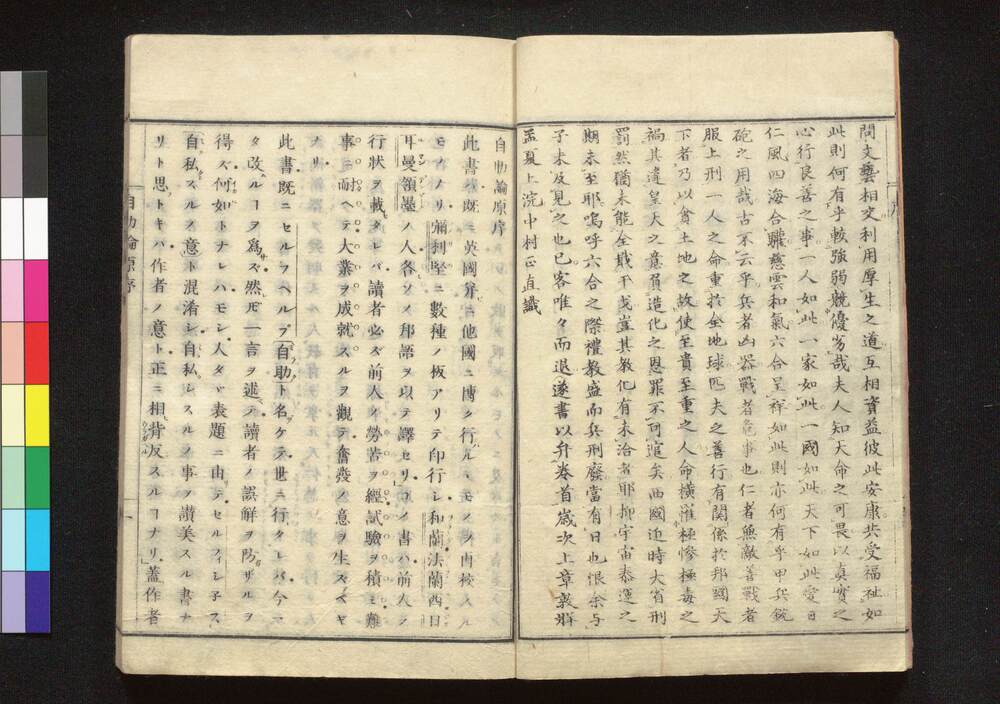 問文藝相交利用厚生之道互相資益彼此安康共受福祉如
此則何有乎較強弱競優劣哉夫人知天命之可畏以真實之
心行良善之事一人如此一家如此一國如此天下如此愛日
仁風四海合驩慈雲和氣六合呈祥如此則亦何有乎甲兵銃
砲之用哉古不云乎兵者凶器戰者危事也仁者無敵善戰者
服上刑一人之命重於全地球匹夫之善行有關係於邦國天
下者乃以貪土地之故使至貴至重之人命橫罹極慘極毒之
禍其違皇天之意負造化之恩罪不可逭矣西國近時大省刑
罰然猶未能全戢干戈豈其教化有未洽者耶抑宇宙泰運之
期未至耶嗚呼六合之際禮教盛而兵刑廢當有日也恨余与
子未及見之也已客唯々而退遂書以弁卷首歲次上章敦牂
孟夏上浣中村正直識
自助論原序
此書ハ既ニ英國并ニ他國ニ博ク行ルヽモノヲ再校スル
モノナリ彌利堅ニ數種ノ板アリテ印行シ和蘭法蘭西日
耳曼領墨ノ人各ソノ邦語ヲ以テ譯セリコノ書ハ前人ノ
行狀ヲ載タレバ讀者必ズ前人ノ勞苦ヲ經試驗ヲ積ミ難
事ニ耐ヘテ大業ヲ成就スルヲ觀テ奮發ノ意ヲ生ズベキ
ナリ
此書既ニセルフヘルプ自助ト名ケテ世ニ行タレバ今マ
タ改ルコヲ爲ズ然ドモ一言ヲ述テ讀者ノ誤解ヲ防ザルヲ
得ズ何如トナレハモシ人タヾ表題ニ由テセルフィシ子ス
自私スルノ意ト混淆シ自私シスルノ事ヲ讃美スル書ナ
リト思トキハ作者ノ意ト正ニ相背反スルコナリ蓋作者
自助論原序
序
一